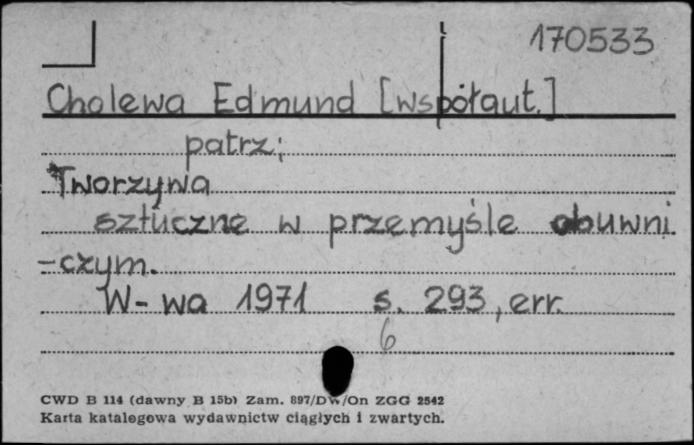 170533
Cholewa Edmund [współaut.]
patrz:
Tworzywa
sztuczne w przemyśle obuwni
-czym.
W-wa 1971 s. 293, err.
6
CWD B 114 (dawny B 15b) Zam. 897/DW/On ZGG 2542
Karta katalogowa wydawnictw ciągłych i zwartych.